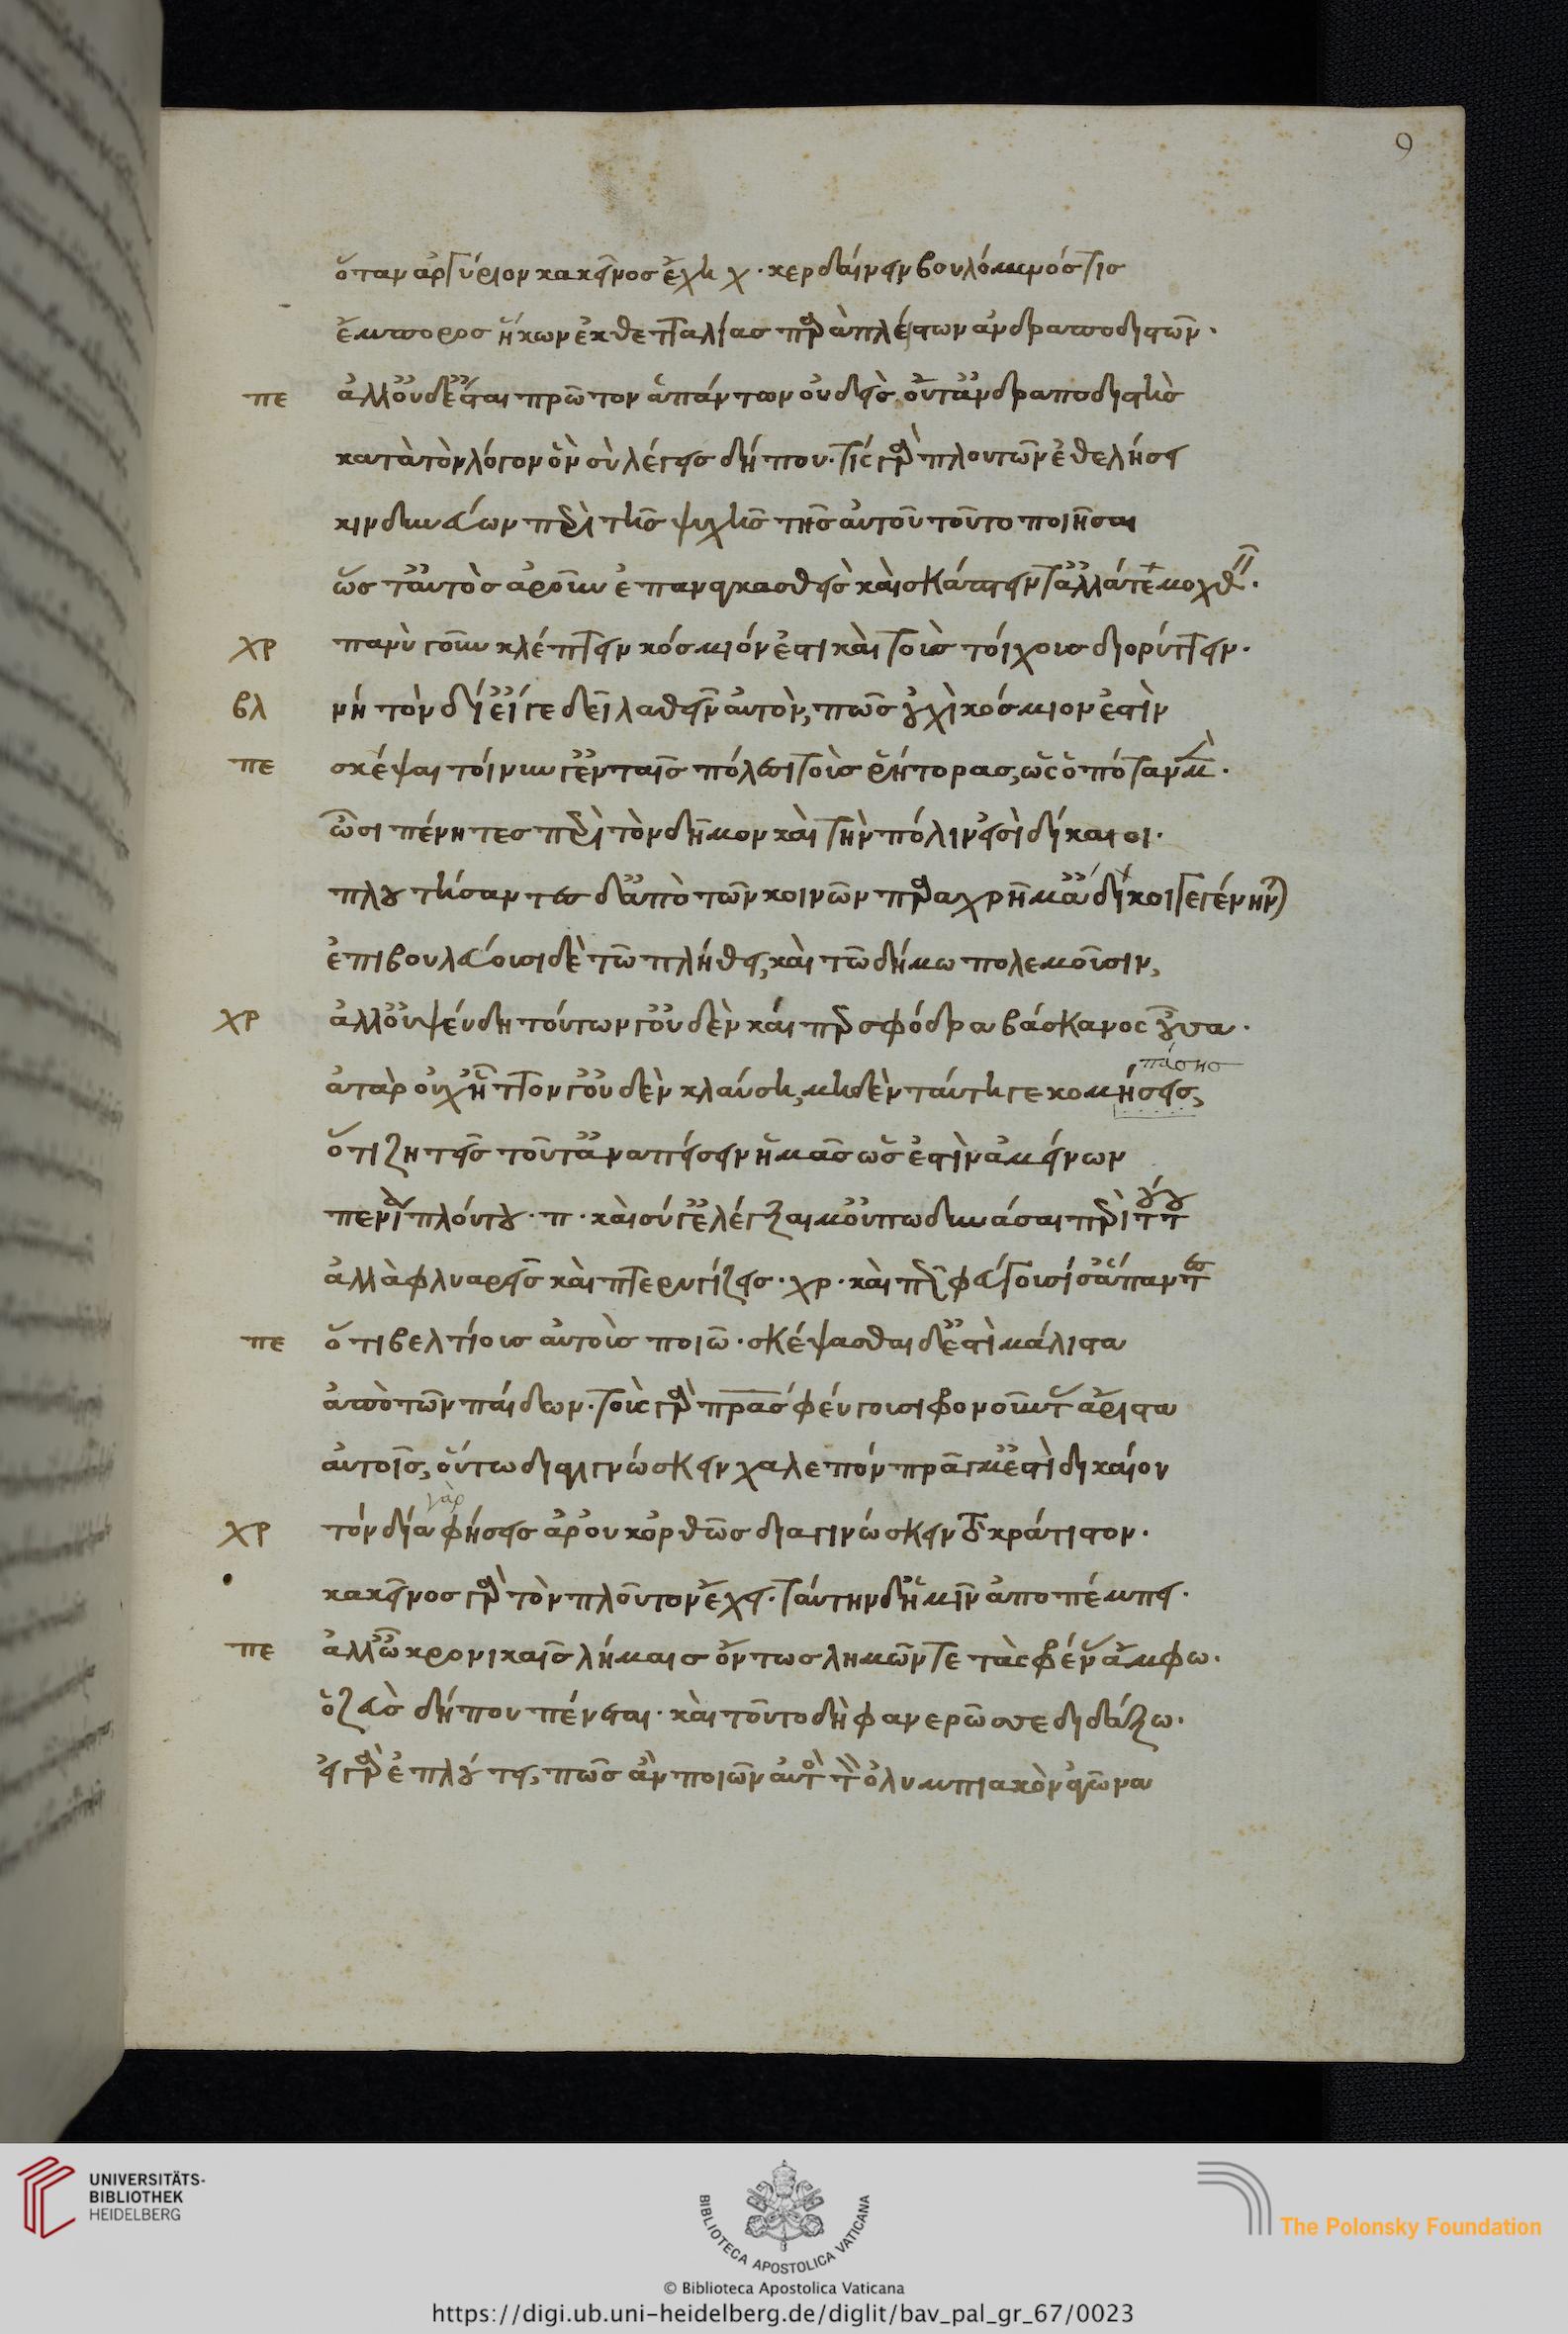 9
ὅταν ἀργύριον κακεῖνος ἔχη χ· κερδαίνειν βουλόμενός τις
ἔμπορος ἥκων ἐκ θετταλίας παρὰ πλείστων ἀνδραποδιστῶν·
πε ἀλλ' οὐδ' ἔσται πρῶτον ἁπάντων οὐδεὶς οὔτ' ἀνδραποδιστὴς
κατὰ τὸν λόγον ὃν σὺ λέγεις δήπου· τίς γὰρ πλουτῶν ἐθελήσει
κινδυνεύων περὶ τῆς ψυχῆς τῆς αὑτοῦ τοῦτο ποιῆσαι
ὥστ' αὐτὸς ἀροῦν ἐπαναγκασθεὶς καὶ σκάπτειν τἄλλά τε μοχθεῖν·
χρ πανὺ γοῦν κλέπτειν κόσμιόν ἐστι καὶ τοὺς τοίχους διορύττειν·
βλ νὴ τὸν δί' εἴ γε δεῖ λαθεῖν αὐτὸν, πῶς οὐχὶ κόσμιον ἐστὶν
πε σκέψαι τοίνυν γ' ἐν ταῖς πόλεσι τοὺς ῥήτορας, ὡς ὁπόταν μὲν·
ὦσι πένητες περὶ τὸν δῆμον καὶ τὴν πόλιν εἰσὶ δίκαιοι·
πλουτήσαντες δ' ἀπὸ τῶν κοινῶν παραχρῆμ' ἄδικοι γεγένηνται
ἐπιβουλεύουσι δὲ τῶ πλήθει, καὶ τῶ δήμω πολεμοῦσιν,
χρ ἀλλ' οὐ ψεύδη τούτων γ' οὐδὲν καίπερ σφόδρα βάσκανος οὖσα·
πάσης
ἀτὰρ οὐχ ἧττον γ' οὐδὲν κλαύση, μηδὲν ταύτη γε κομήσεις,
ὅτι ζητεῖς τοῦτ' ἀναπείσειν ἡμᾶς ὡς ἐστὶν ἀμείνων
πενία πλούτου· π· καὶ σύ γ' ἐλέγξαι μ' οὔπω δύνασαι περὶ τούτου
ἀλλὰ φλυαρεῖς καὶ πτερυγίζεις· χρ· καὶ πῶς φεύγουσί σ' ἅπαντες
πε ὅτι βελτίους αὐτοὺς ποιῶ· σκέψασθαι δ' ἐστὶ μάλιστα
ἀπὸ τῶν παίδων· τοὺς γὰρ πατέρας φεύγουσι φρονοῦντας ἄριστα
αὐτοῖς, οὕτω διαγιγνώσκειν χαλεπὸν πρᾶγμ' ἐστὶ δίκαιον
γὰρ
χρ τὸν δία φήσεις ἆρ' οὐκ ὀρθῶς διαγινώσκειν τὸ κράτιστον·
κακεῖνος γὰρ τὸν πλοῦτον ἔχει· ταύτην δ' ἡμῖν ἀποπέμπει·
πε ἀλλ' ὦ κρονικαῖς λήμαις ὄντως λημῶντε τὰς φρένας ἄμφω·
ὁ ζεὺς δήπου πένεται· καὶ τοῦτο δὴ φανερῶς σε διδάξω·
εἰ γὰρ ἐπλούτει, πῶς ἂν ποιῶν αὐτὸς τὸν ὀλυμπιακὸν ἀγῶνα
UNIVERSITÄTS-
BIBLIOTHEK
HEIDELBERG
BIBLIOTECA APOSTOLICA VATICANA
The Polonsky Foundation
© Biblioteca Apostolica Vaticana
https://digi.ub.uni-heidelberg.de/diglit/bav_pal_gr_67/0023